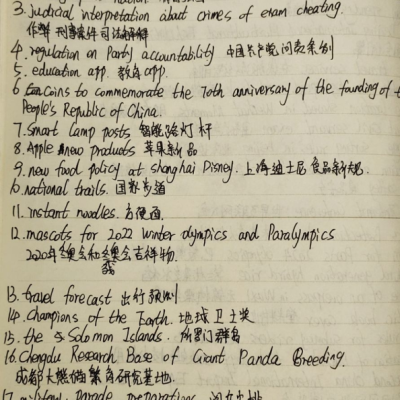 3. judicial interpretation about crimes of exam cheating.
作弊 刑事案件司法解释
4. regulation on Party accountability 中国共产党问责条例
5. education app. 教育app.
6 Coins to commemorate the 70th anniversary of the founding of t
People's Republic of China.
7. smart lamp posts 智能路灯杆
8. Apple new products 苹果新品
9. new food policy at shanghai Disney. 上海迪士尼食品新规.
10. national trails. 国家步道
11. instant noodles. 方便面.
12. mascots for 2022 winter olympics and Paralympics
2020年冬奥会和冬残奥会吉祥物.
13. travel forecast 出行预测
14. Champions of the Earth. 地球卫士奖
15. the Solomon Islands. 所罗门群岛
16. Chengdu Research Base of Giant Panda Breeding.
成都大熊猫繁育研究基地.
17. military parade preparations